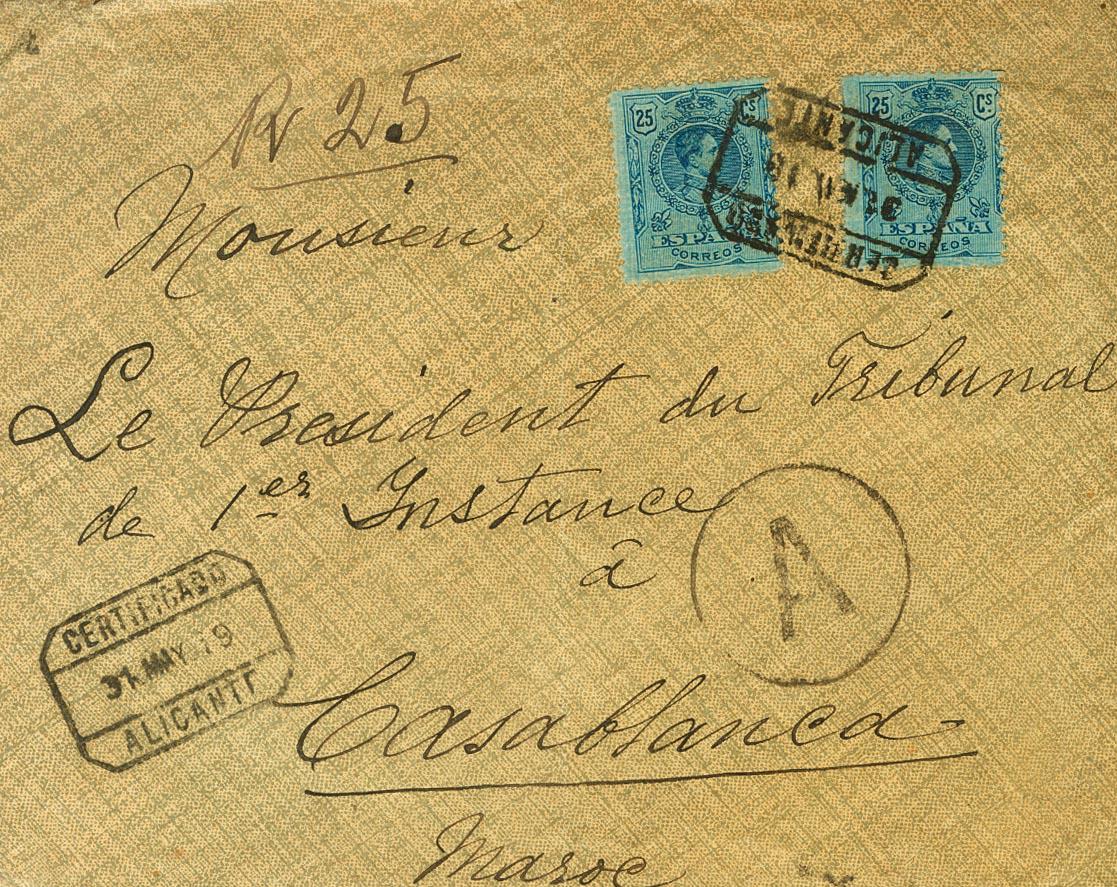 R 25
25 Cs
ESPAÑA
CORREOS
25 Cs.
ESPAÑA
CORREOS
ALICANTE
Monsieur
Le President du Tribunal
de 1er Instance
à
A
CERTIFICADO
31 MAY. 19
ALICANTE
Casablanca
Maroc